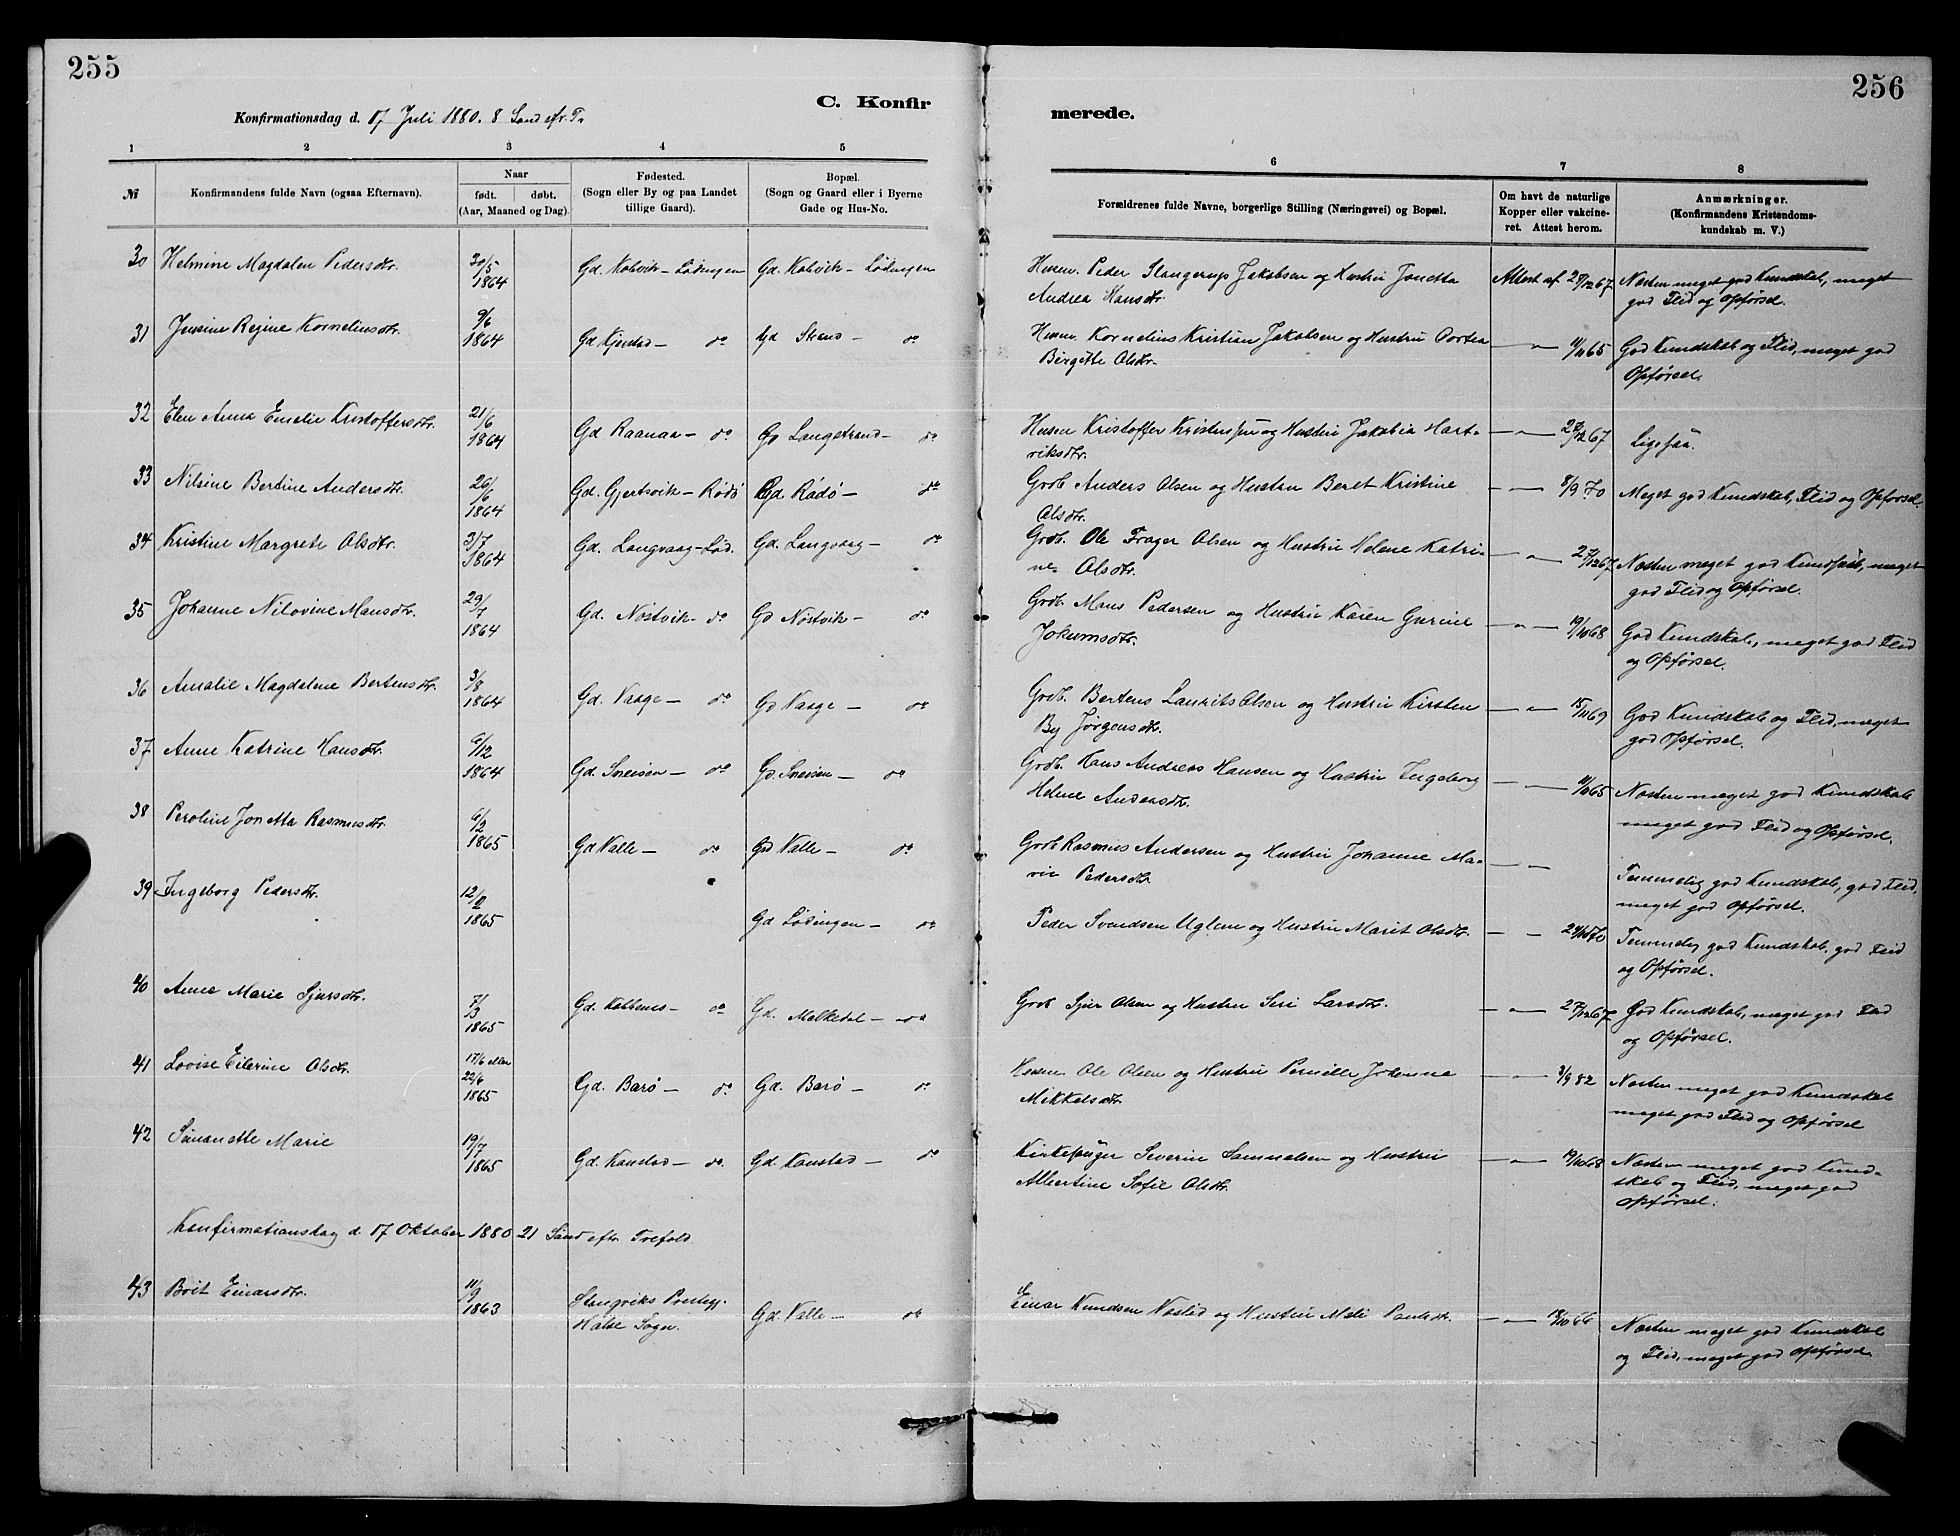 255
256
C. Konfir
merede.
Konfirmationsdag d. 17 Juli 1880. 8 Sønd. efr. Tr.
1 2 3 4 5 6 7 8
№
Konfirmandens fulde Navn (ogsaa Efternavn).
Naar
født. døbt.
(Aar, Maaned og Dag).
Fødested.
(Sogn eller By og paa Landet
tillige Gaard).
Bopæl.
(Sogn og Gaard eller i Byerne
Gade og Hus-No.
Forældrenes fulde Navne, borgerlige Stilling (Næringsvei) og Bopæl.
Om havt de naturlige
Kopper eller vakcine-
ret. Attest herom.
Anmærkninger.
(Konfirmandens Kristendoms-
kundskab m. V.)
30 Helmine Magdalen Pedersdtr. 20/5 1864 Gd. Kobvik – Lødingen Gd. Kobvik – Lødingen
Husm. Peder Slangerup Jakobsen og Hustru Jonetta
Andrea Hansdtr.
Attest af 28/12 67
Næsten meget god Kundskab, meget
god Flid og Opførsel.
31 Jensine Regine Korneliusdtr. 9/6 1864 Gd Kjerstad – do Gd Strand – do
Husm. Kornelius Kristian Jakobsen og Hustru Dortea
Birgitte Olsdtr.
– " – 11/11 65
God Kundskab og Flid, meget god
Opførsel.
32 Elen Anna Emelie Kristoffersdtr. 21/6 1864 Gd Raanaa – do Gd Langstrand – do
Husm Kristoffer Kristensen og Hustru Jakobia Hart-
viksdtr.
– " – 28/12 67
Ligesaa.
33 Nilsine Bertine Andersdtr. 26/6 1864 Gd. Gjertsvik – Rødø Gd Rødø – do
Grdb. Anders Olsen og Hustru Beret Kristine
Olsdtr.
– " – 8/9 70
Meget god Kundskab, Flid og Opførsel.
34 Kristine Margrete Olsdtr. 3/7 1864 Gd. Langvaag – Lød. Gd. Langvaag – do
Grdb. Ole Trager Olsen og Hustru Nelene Katri-
ne Olsdtr.
– " – 27/12 67
Næsten meget god Kundskab, meget
god Flid og Opførsel.
35 Johanne Nilovine Mansdtr. 29/7 1864 Gd. Nøstvik – do Gd Nøstvik – do
Grdb. Mans Pedersen og Hustru Karen Gurine
Jokumsdtr.
– " – 19/10 68
God Kundskab, meget god Flid
og Opførsel.
36 Amalie Magdalene Bertensdtr. 3/8 1864 Gd. Vaage – do Gd Vaage – do
Grdb. Bertens Laurits Olsen og Hustru Kirsten
By Jørgensdtr.
– " – 15/11 69
God Kundskab og Flid, meget
god Opførsel.
37 Anne Katrine Hansdtr. 6/12 1864 Gd. Sneisen – do Gd. Sneisen – do
Grdb. Hans Andreas Hansen og Hustru Ingeborg
Helene Andersdtr.
– " – 11/11 65
Næsten meget god Kundskab
meget god Flid og Opførsel.
38 Peroline Jonetta Rasmusdtr. 6/2 1865 Gd Valle – do Gd Valle – do
Grdb Rasmus Andersen og Hustru Johanne Ma-
rie Pedersdtr.
– " –
Temmelig god Kundskab, god Flid,
meget god Opførsel.
39 Ingeborg Pedersdtr. 12/2 1865 Gd Lødingen – do
Peder Svendsen Uglem og Hustru Marit Olsdtr.
– " – 24/10 70
Temmelig god Kundskab, god Flid
og Opførsel.
40 Anne Marie Sjursdtr. 7/3 1865 Gd. Kobbenes – do Gd. Melkedal – do
Grdb Sjur Olsen og Hustru Siri Larsdtr.
– " – 27/12 67
God Kundskab, meget god Flid
og Opførsel.
41 Lovise Eilerine Olsdtr. 17/6 eller 22/6 1865 Gd. Barø – do Gd. Barø – do
Husm. Ole Olsen og Hustru Pernille Johanna
Mikkelsdtr.
– " – 3/9 82
Næsten meget god Kundskab
meget god Flid og Opførsel
42 Simanette Marie 19/7 1865 Gd. Kanstad – do. Gd. Kanstad – do
Kirkesanger Severin Samuelsen og Hustru
Albertine Sofie Olsdtr.
– " – 19/10 68
Næsten meget god Kund-
skab og Flid, meget god
Opførsel.
Konfirmationsdag d. 17 Oktober 1880 21 Sønd efter Trefold.
43 Brit Einarsdtr. 11/9 1863 Stangviks Prestegj. Halse Sogn. Gd. Valle – do
Einar Knudsen og Hustru
– " – 18/10 66
Næsten meget god Kundskab
og Flid, meget god Opførsel.